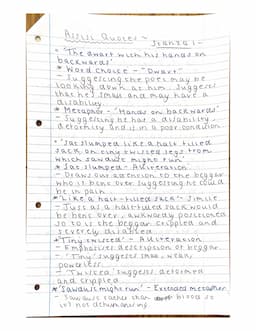 Assisi Quotes -
Stanza 1 -
* 'The dwarf with his hands on
backwards'
* Word choice - "Dwarf"
- Suggesting the poet may be
looking down at him. Suggests
that he's small and may have a
disability.
* Metaphor - 'Hands on backwards'
- Suggesting he has a disability,
deformity and is in a poor condition.
* 'Sat, slumped like a half-filled
sack on tiny twisted legs from
which sawdust might run'
* 'Sat, slumped' - Alliteration
- Draws our attention to the beggar
who is bent over. Suggesting he could
be in pain.
* 'Like a half-filled sack' - Simile
- Just as a half-filled sack would
be bent over, awkwardly positioned
so to is the beggar crippled and
severely disabled.
* 'Tiny twisted' - Alliteration
- Emphasises description of beggar.
- 'Tiny' suggests small, weak,
powerless.
- 'Twisted' suggests deformed
and crippled.
* 'Sawdust might run' - Extended metaphor
- Sawdust rather than blood so
it's not dehumanising.